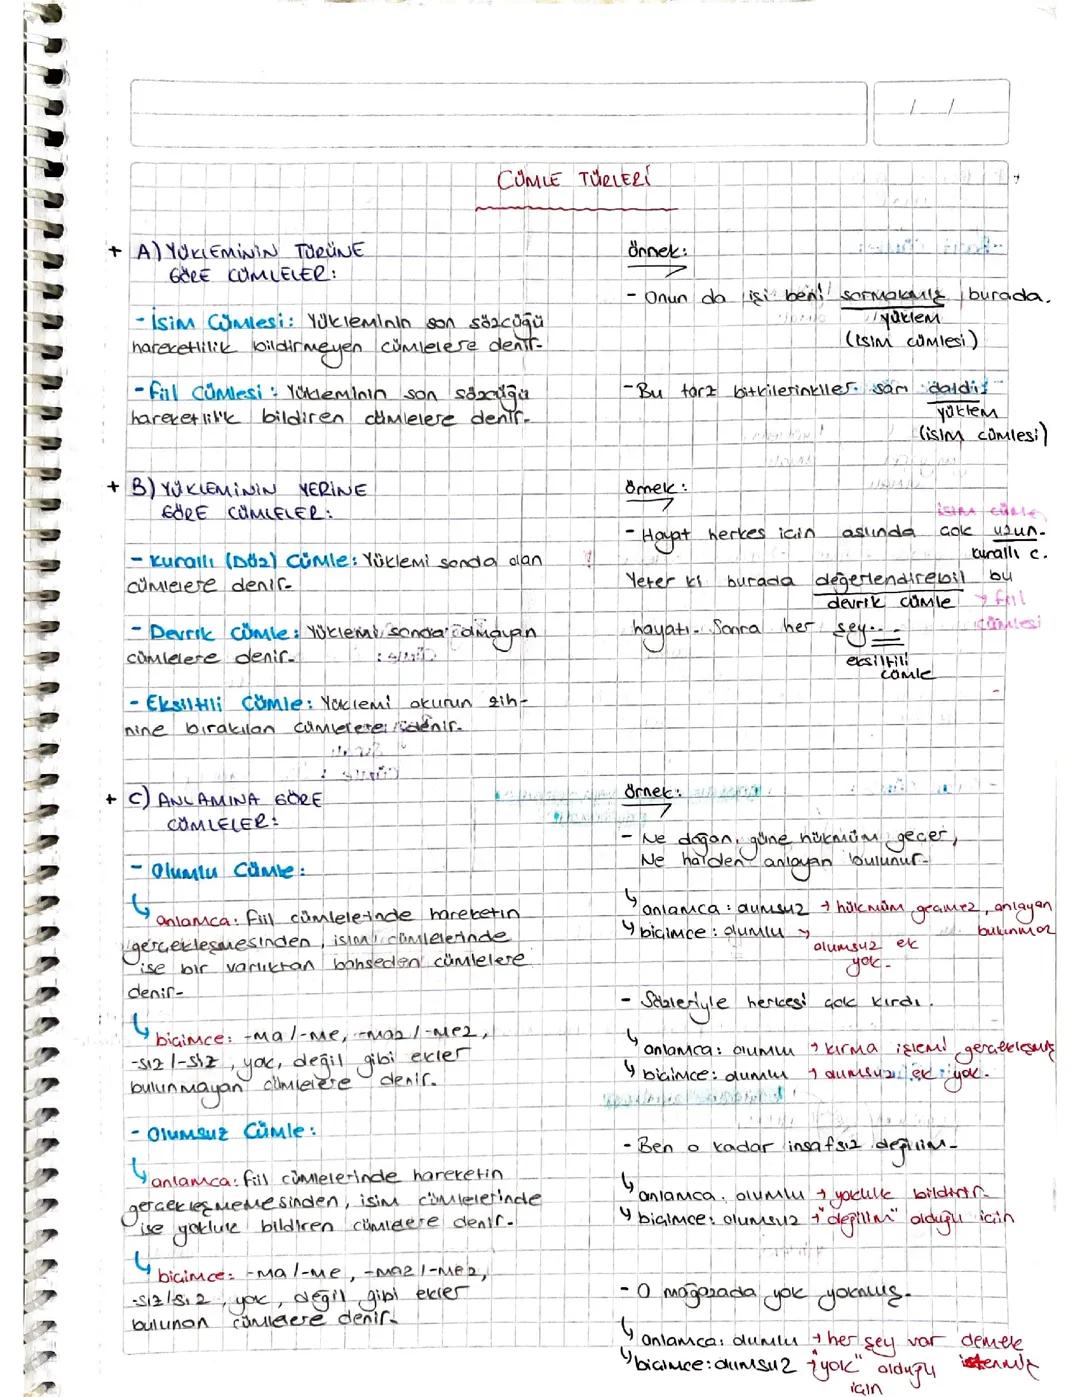 CÜMLE TÜRLERİ
+ A) YÜKLEMİNİN TÜRÜNE
GÖRE CÜMLELER:
- İsim Cümlesi: Yükleminin son sözcüğü
hareketlilik bildirmeyen cümlelere denir.
- Fiil Cümlesi: Yükleminin son sözcüğü
hareketlilik bildiren cümlelere denir.
örnek:
- Onun da işi beni sormakmış burada.
yüklem
(isim cümlesi)
- Bu tarz bitkilerinkiler sarı daldı
yüklem
(isim cümlesi)
+ B) YÜKLEMİNİN YERİNE
GÖRE CÜMLELER:
- Kurallı (Düz) Cümle: Yüklemi sonda olan
cümlelere denir.
- Devrik Cümle: Yüklemi sonda olmayan
cümlelere denir.
- Eksiltili Cümle: Yüklemi okurun zih-
nine bırakılan cümlelere denir.
örnek:
isim cümle
- Hayat herkes için aslında çok uzun.
kurallı c.
Yeter ki burada değerlendirebil bu
devrik cümle → fiil
hayatı. Sonra her şey... cümlesi
eksiltili
cümle
+ C) ANLAMINA GÖRE
CÜMLELER:
- Olumlu Cümle:
↳ anlamca: fiil cümlelerinde hareketin
gerçekleşmesinden, isim cümlelerinde
ise bir varlıktan bahseden cümlelere
denir.
↳ biçimce: -ma/-me, -maz/-mez,
-sız/-siz, yok, değil gibi ekler
bulunmayan cümlelere denir.
- Olumsuz Cümle:
↳ anlamca: fiil cümlelerinde hareketin
gerçekleşmemesinden, isim cümlelerinde
ise yokluk bildiren cümlelere denir.
↳ biçimce: -ma/-me, -maz/-mez,
-sız/siz, yok, değil gibi ekler
bulunan cümlelere denir.
örnek:
- Ne doğan, güne hükmüm geçer,
Ne halden anlayan bulunur.
↳ anlamca: olumsuz → hükmüm geçmez, anlayan
↳ biçimce: olumlu → bulunmaz
olumsuz ek
yok.
- Sözleriyle herkesi çok kırdı.
↳ anlamca: olumlu → kırma işlemi gerçekleşmiş
↳ biçimce: olumlu → olumsuz ek yok.
- Ben o kadar insafsız değilim.
↳ anlamca: olumlu → yokluk bildirir
↳ biçimce: olumsuz → "değilim" olduğu için
- O mağazada yok yokmuş.
↳ anlamca: olumlu → her şey var demek
↳ biçimce: olumsuz → "yok" olduğu istenmiş
için